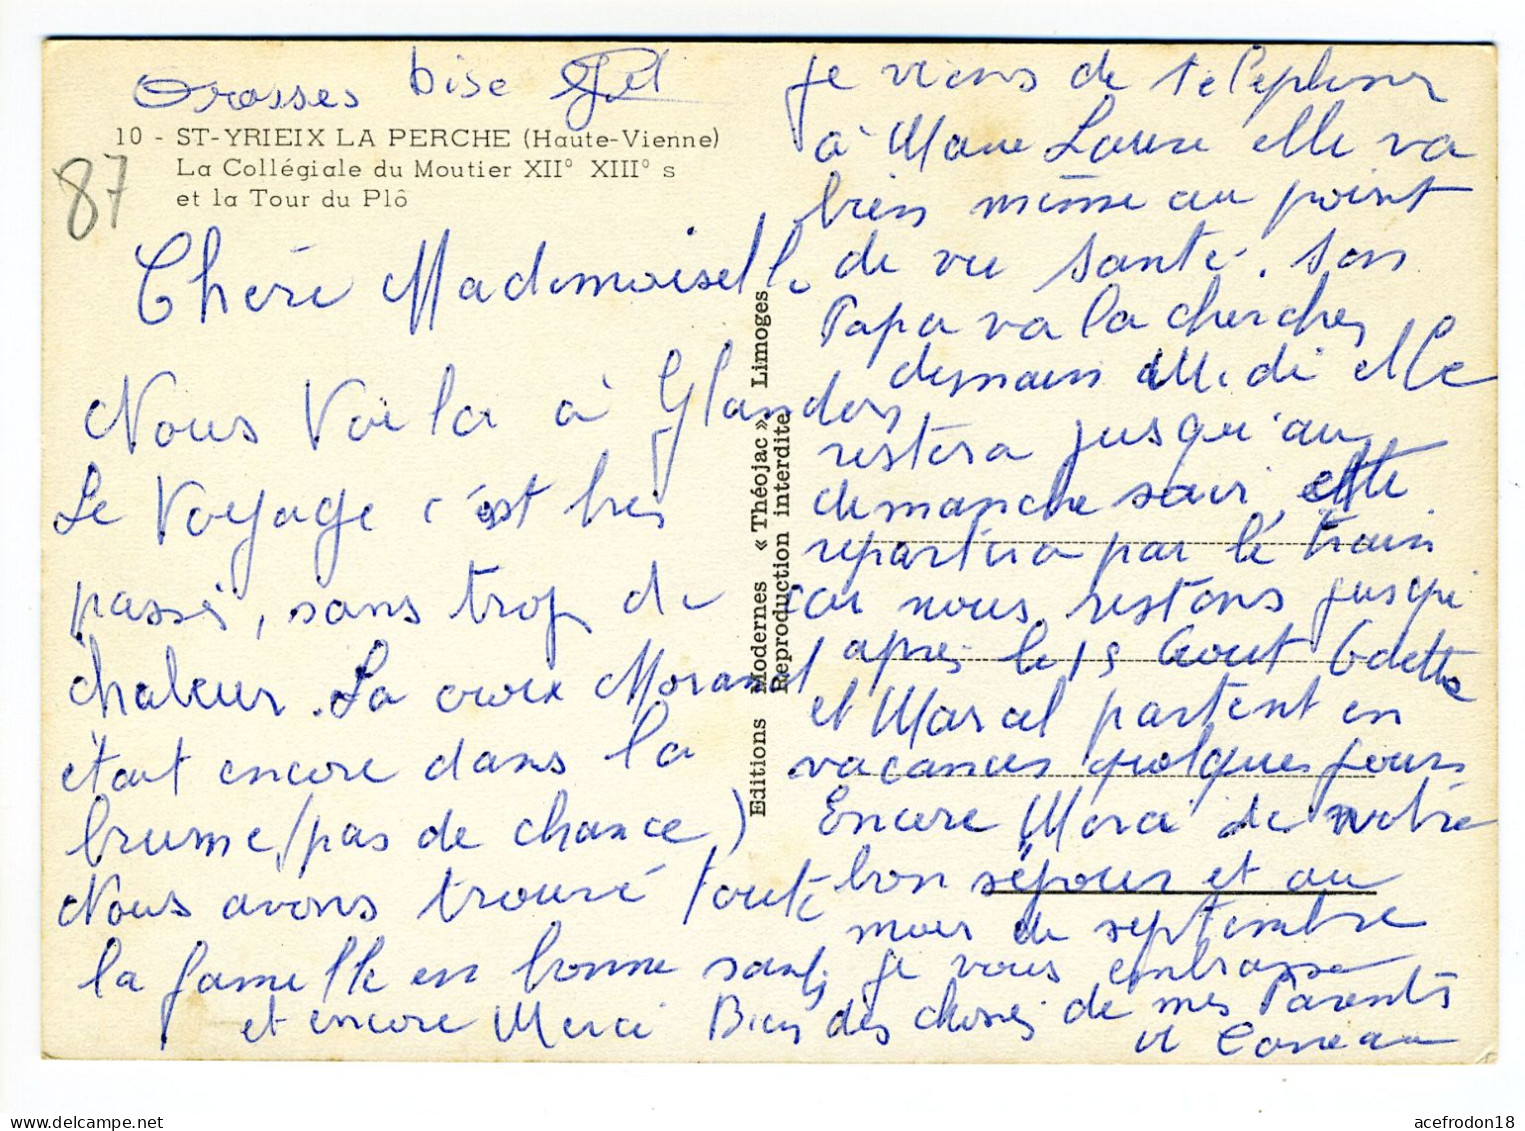 Grosses bise
10 - ST-YRIEIX LA PERCHE (Haute-Vienne)
La Collégiale du Moutier XII° XIII° s
et la Tour du Plô
87
Chère Mademoiselle
Nous Voila à Glandon
Le Voyage c'est bien
passé, sans trop de
chaleur. La croix Morand
était encore dans la
brume, (pas de chance)
Nous avons trouvé toute
la famille en bonne santé
et encore Merci
Editions Modernes « Théojac » Limoges
Reproduction interdite
je viens de telephoner
à Marie Louise elle va
bien même au point
de vue santé. Son
Papa va la chercher
demain Midi elle
restera jusqu'au
dimanche soir, elle
repartira par le train
car nous restons jusqu'
apres le 15 Aout Odette
et Marcel partent en
vacances quelques jours
Encore Merci de notre
bon séjour et au
mois de septembre
je vous embrasse
Bien des choses de mes Parents
et
acefrodon18